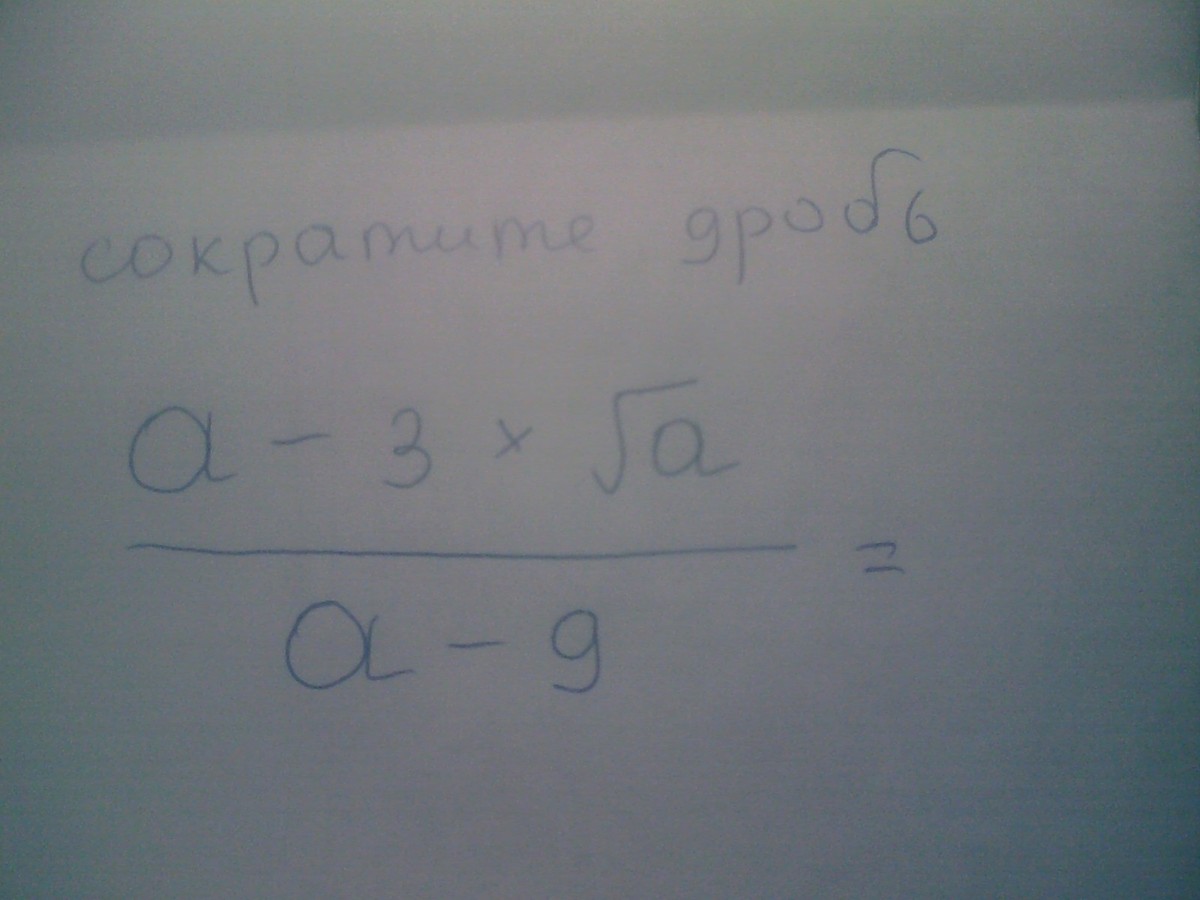 сократите дробь
a - 3 × √a
a - 9 =